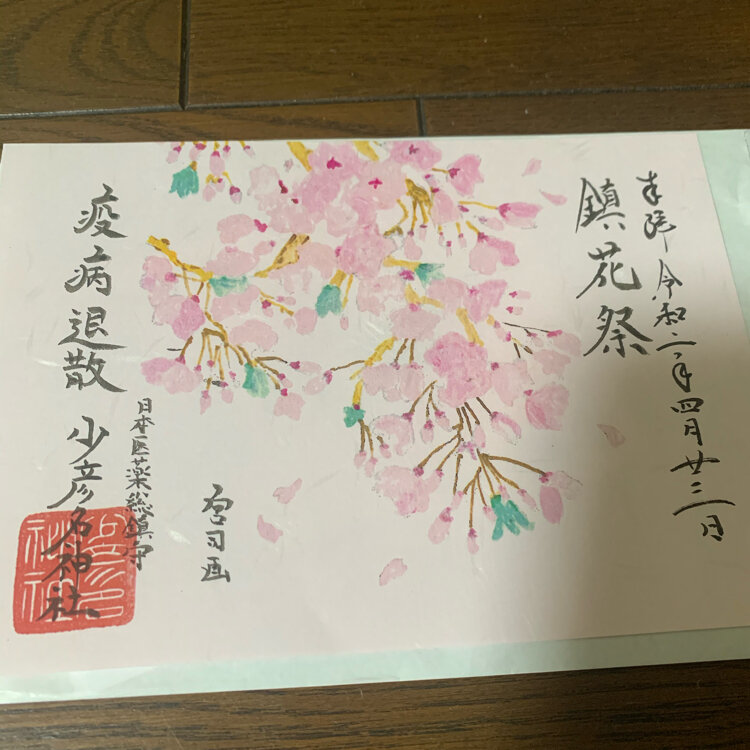 奉拝 令和二年四月廿三日
鎮花祭
宮司画
日本医薬総鎮守
疫病退散 少彦名神社